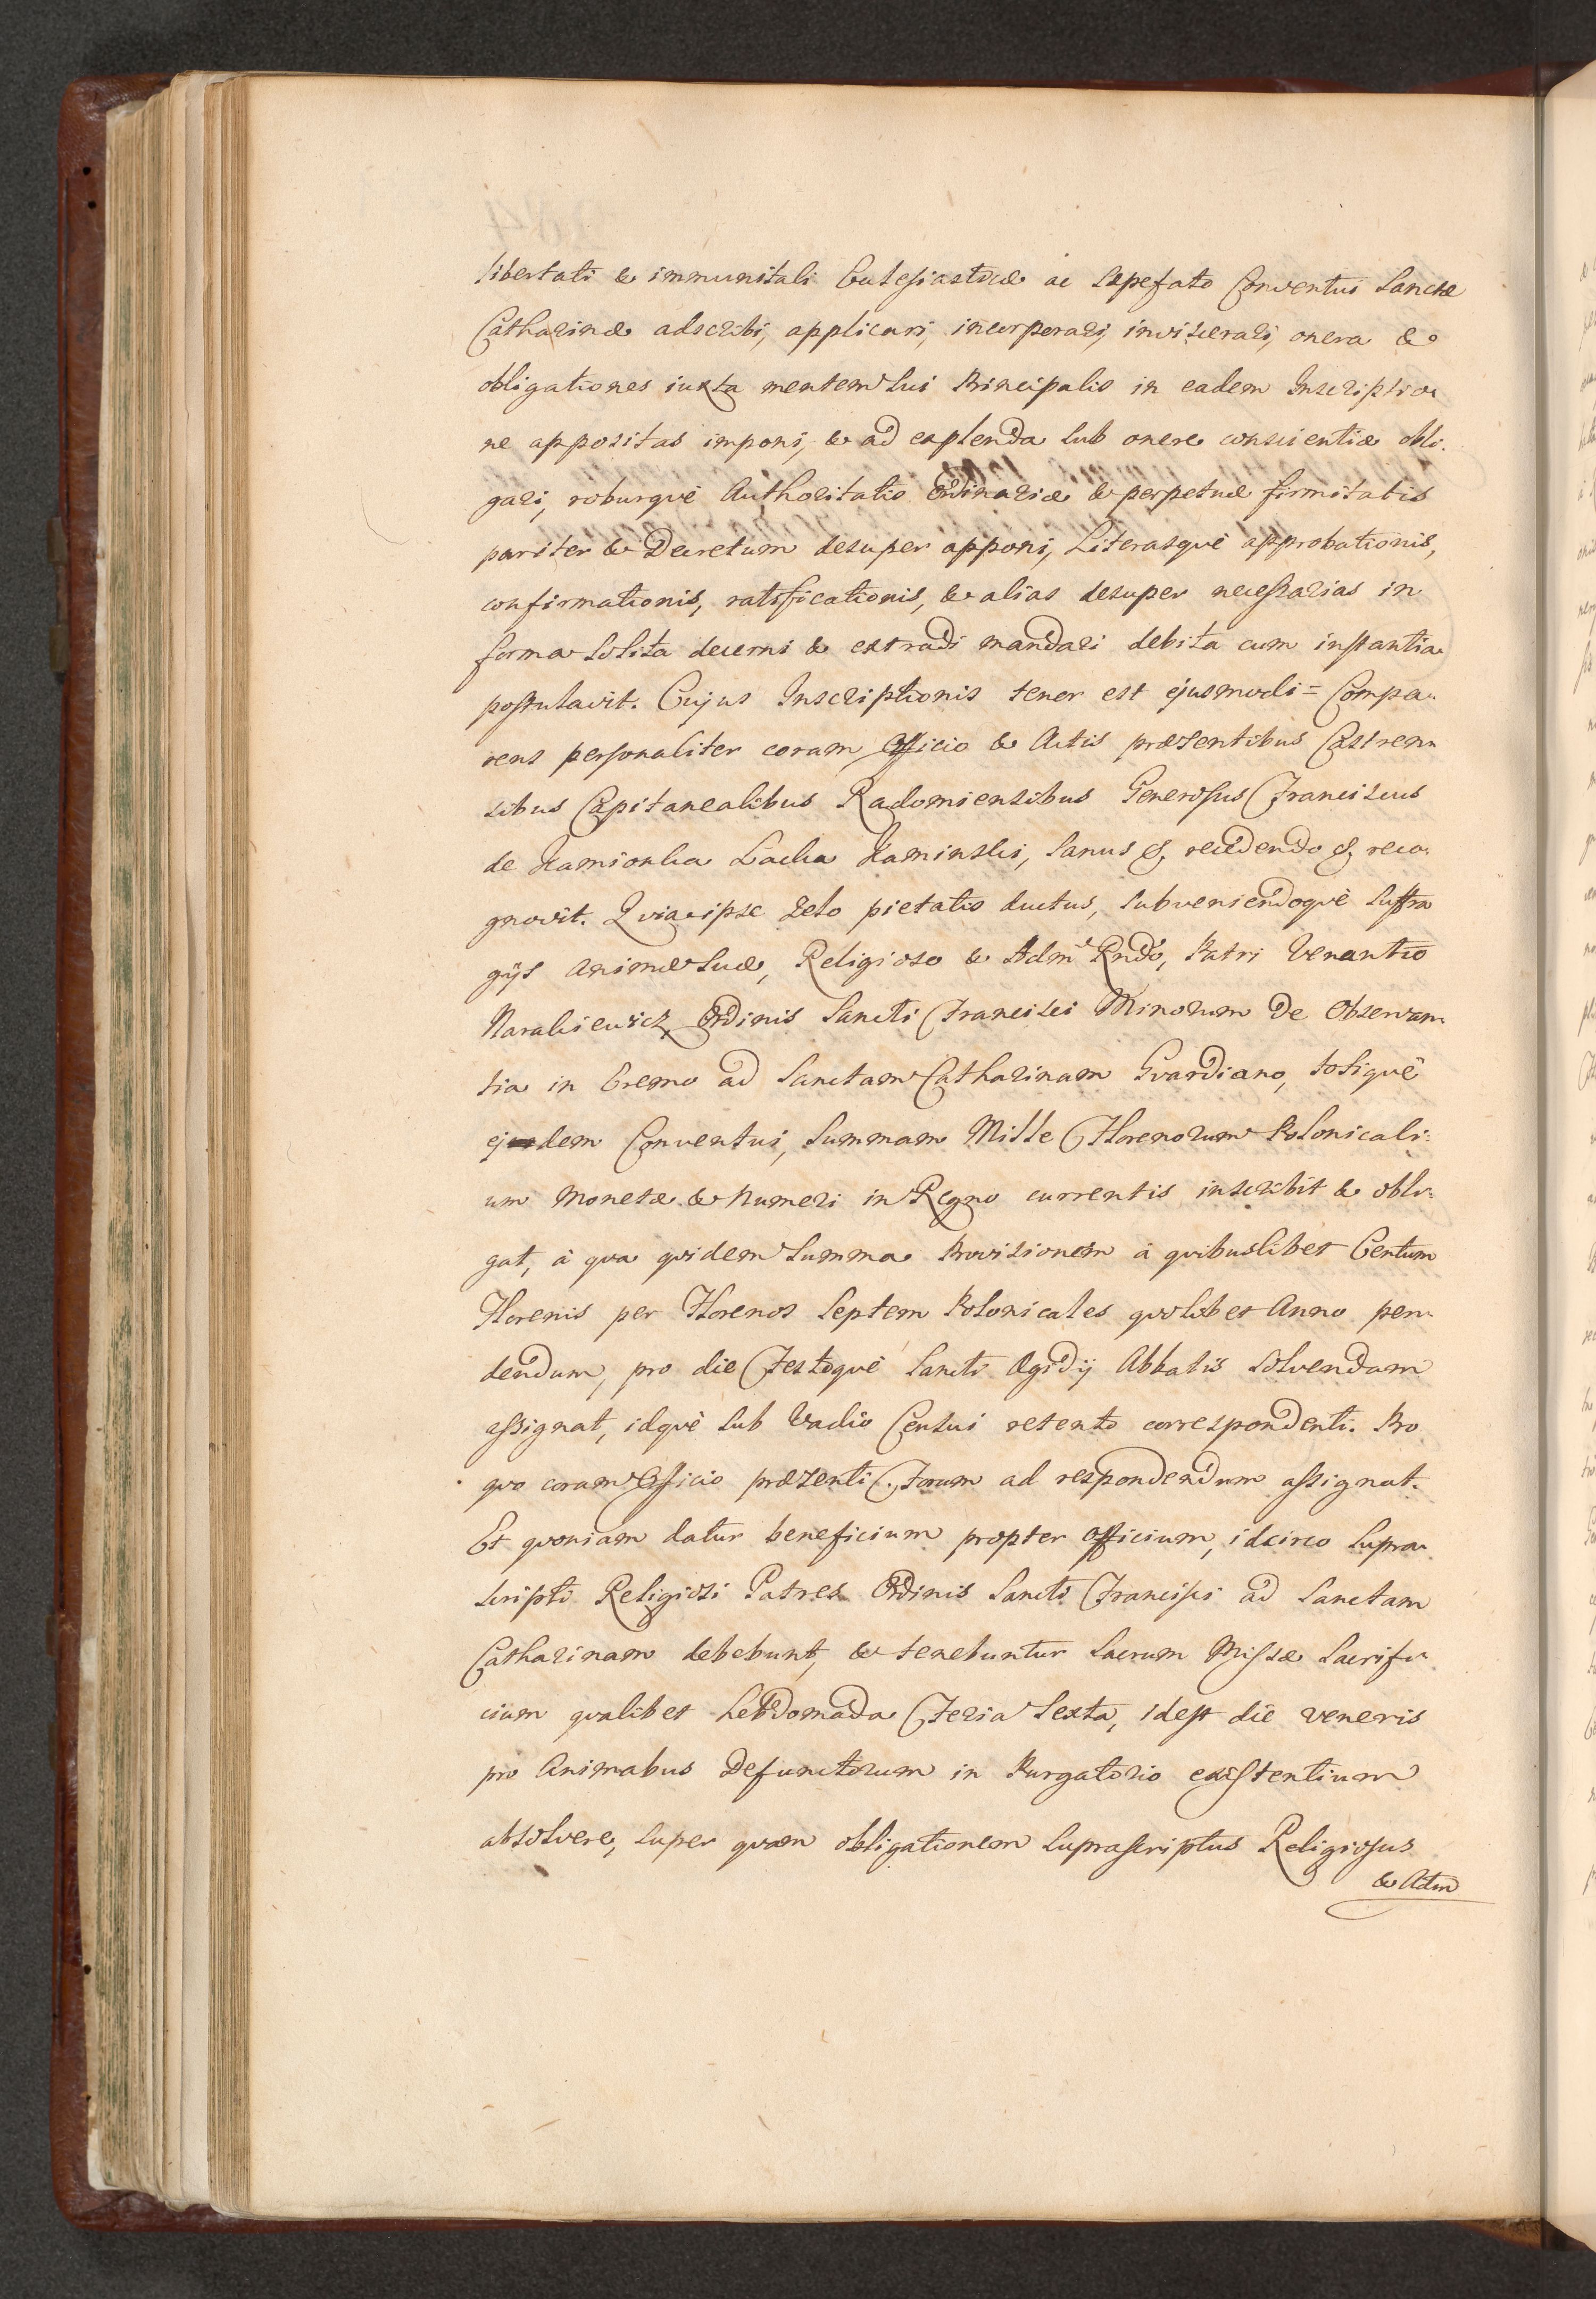 libertati & immunitati Ecclesiasticæ ac sæpefato Conventui Sanctæ
Catharinæ adscribi, applicari, incorporari, inviscerari, onera &
obligationes iuxta mentem sui Principalis in eadem Inscriptio-
ne appositas imponi, & ad explenda sub onere conscientiæ obli-
gari, roburquè Authoritatis Ordinariæ & perpetuæ firmitatis
pariter & Decretum desuper apponi, Literasquè approbationis,
confirmationis, ratificationis, & alias desuper necessarias in
forma solita decerni & extradi mandari debita cum instantia
postulavit. Cujus Inscriptionis tenor est ejusmodi = Compa-
rens personaliter coram Officio & Actis præsentibus Castren-
sibus Capitanealibus Radomiensibus Generosus Franciscus
de Kamionka Lacka Kaminski, sanus &, recedendo &, reco-
gnovit. Quia ipse zelo pietatis ductus, subveniendoquè suffra
gijs animæ suæ, Religioso & Adm Rndo, Patri Venantio
Narakiewicz Ordinis Sancti Francisci Minorum De Observan-
tia in Eremo ad Sanctam Catharinam Gvardiano, totiquè
ejdem Conventui, summam Mille Florenorum Polonicali-
um Monetæ & Numeri in Regno currentis inscribit & obli-
gat, à qva qvidem summa Provisionem à qvibuslibet Centum
Florenis per Florenos septem Polonicales qvolibet Anno pen-
dendum, pro die Festoquè Sancti Ægidij Abbatis solvendam
assignat, idquè sub Vadio Censui retento correspondenti. Pro
qvo coram Officio præsenti Forum ad respondendum assignat.
Et qvoniam datur beneficium propter officium, idcirco supra
scripti Religiosi Patres Ordinis Sancti Francisci ad Sanctam
Catharinam debebunt, & tenebuntur Sacrum Missæ Sacrifi-
cium qvalibet hebdomada Feria Sexta, idest die veneris
pro Animabus Defunctorum in Purgatorio existentium
absolvere, super qvam obligationem suprascriptus Religiosus
& Adm